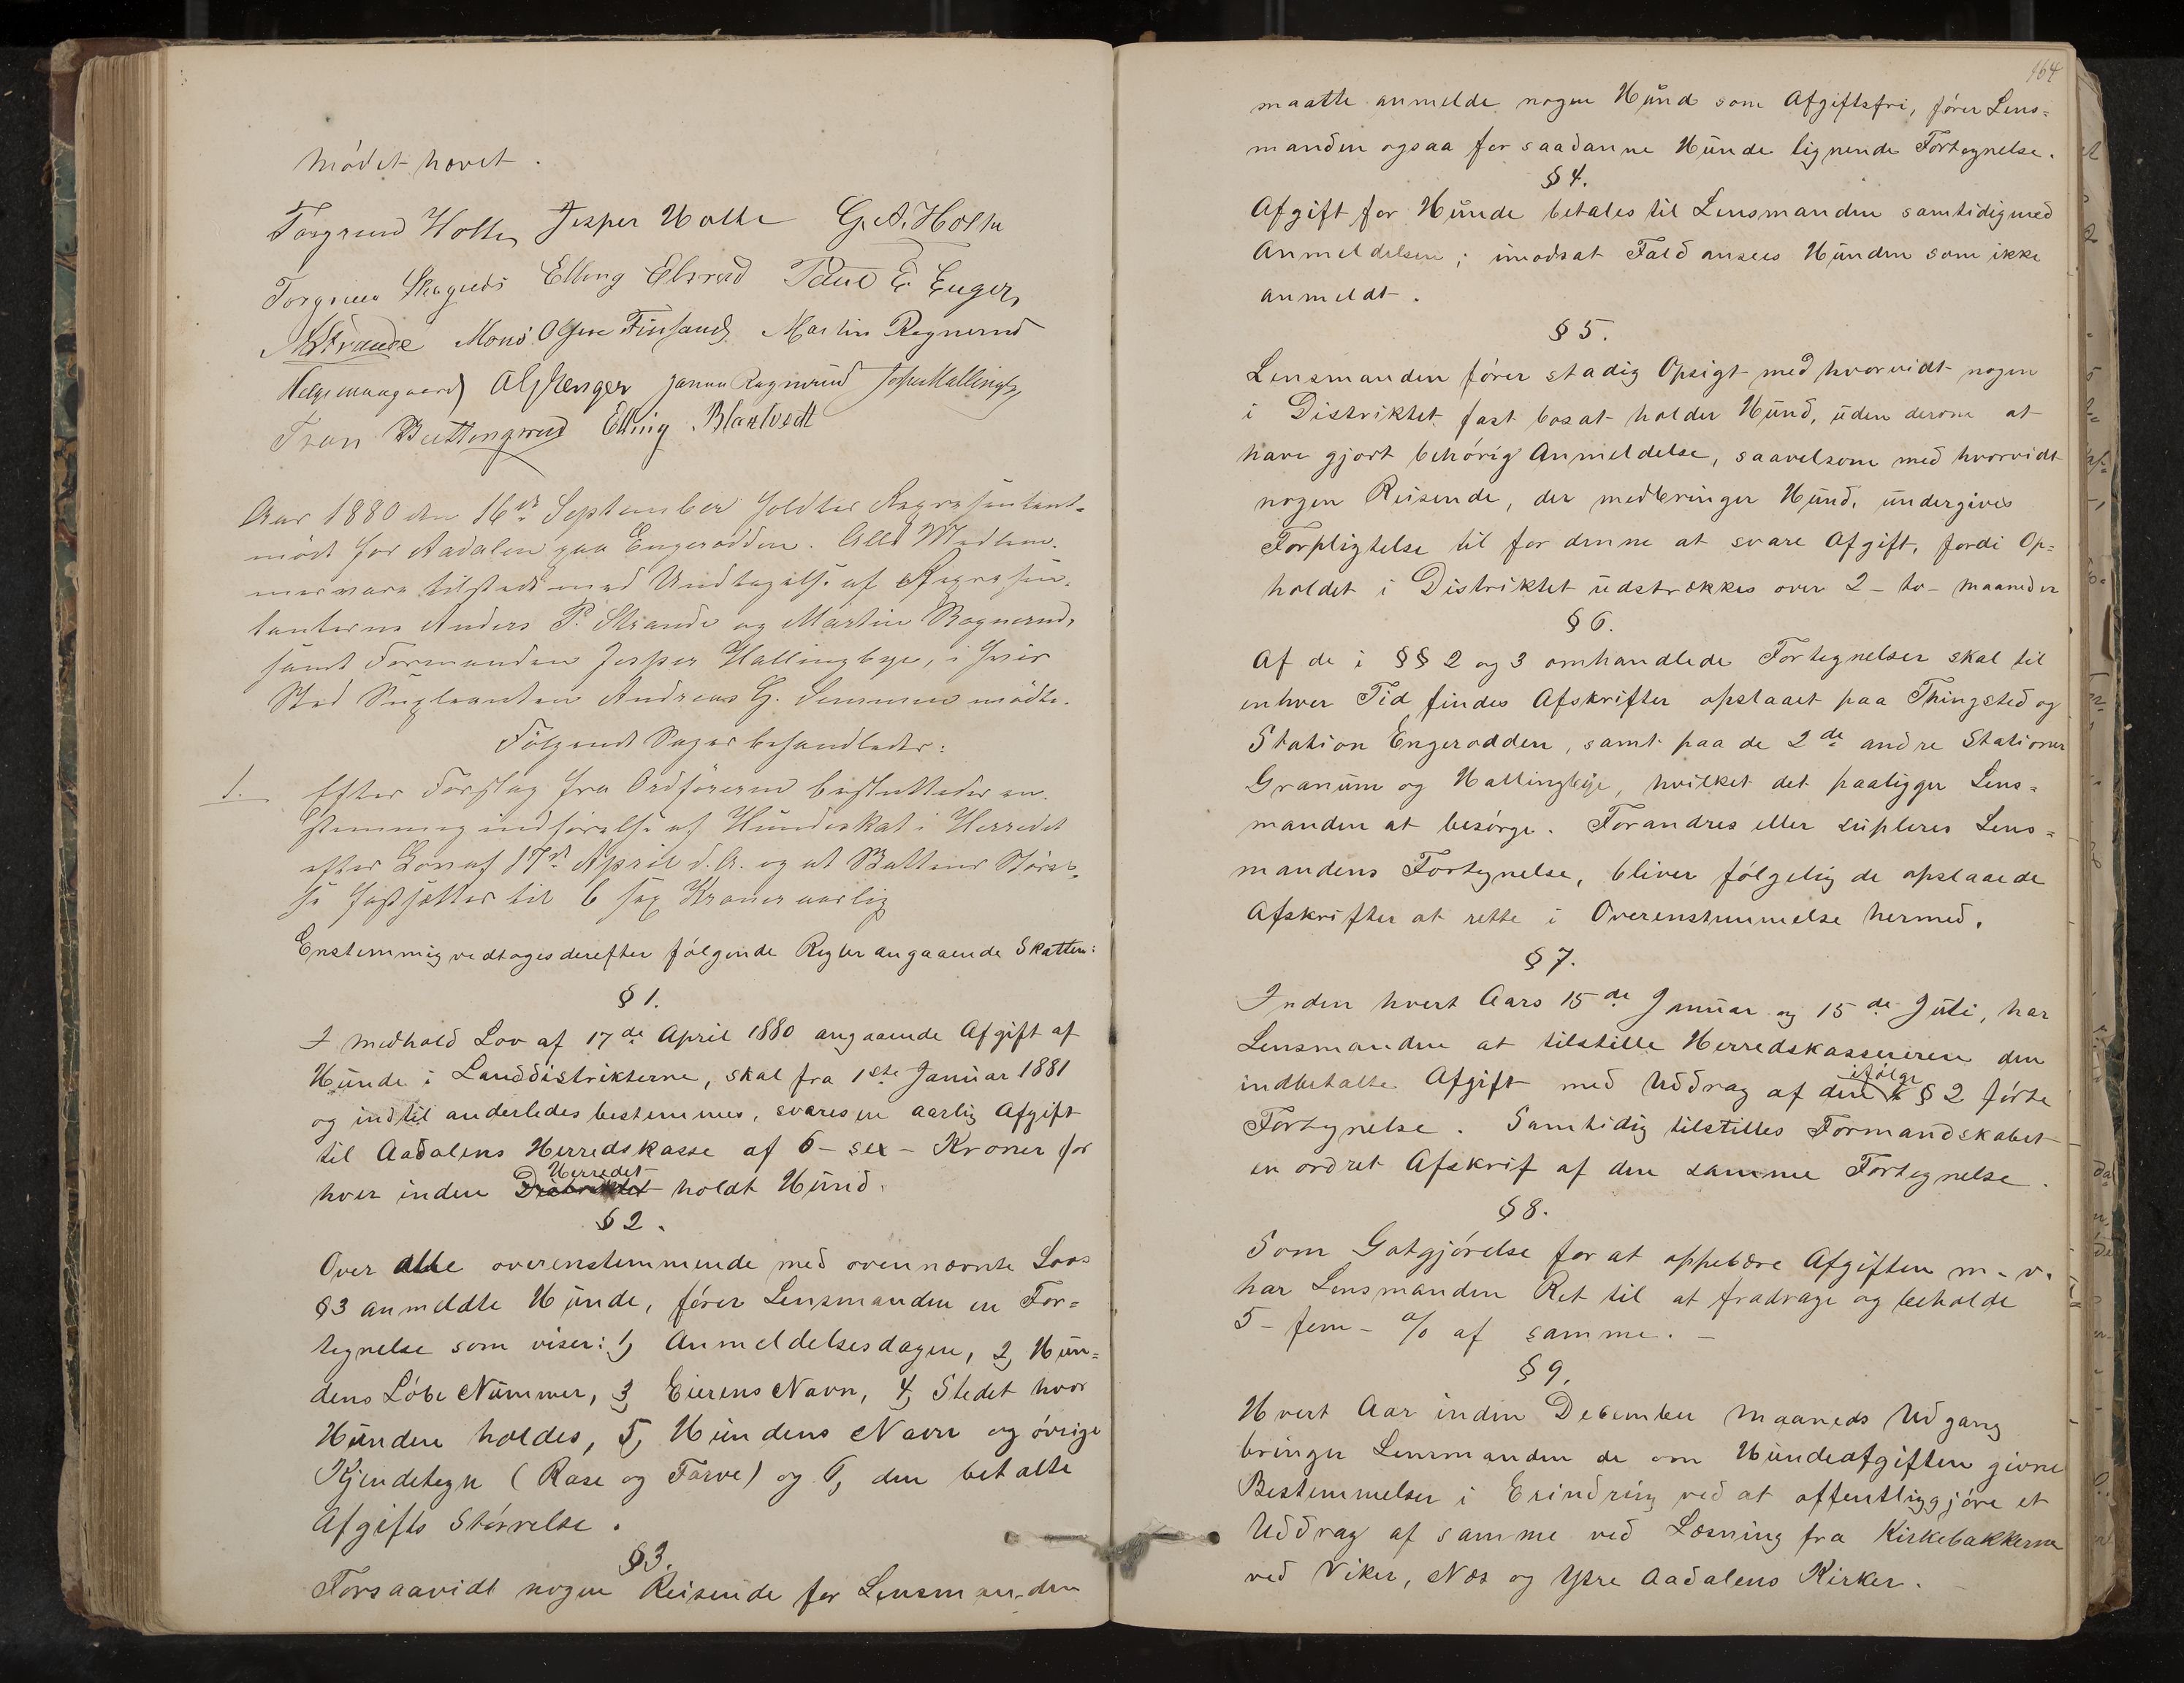 Mödet hævet.
Torgrim Holte Jesper Holte G. A. Holte
Elling Elsrud Paul E. Enger
Strande Mons Olsen Finsand Martin Rognerud
Helge Johannes Rognerud Jesper Hallingby
Iver Buttingsrud Elling Blakstvedt
Aar 1880 den 16de September holdtes Repræsentant-
möde for Aadalen paa Engerodden. Alle Medlem-
mer vare tilstede med Undtagelse af Repræsen-
tanterne Anders P. Strande og Martin Rognerud,
samt Formanden Jesper Hallingbye, i hvis
Sted Supleanten Andreas G. Semmen mödte.
Fölgende Sager behandledes:
1. Efter Forslag fra Ordföreren besluttedes en-
stemmig indförelse af Hundeskat i Herredet
efter Lov af 17de April d. A. og at Skattens Störrel-
se fastsættes til 6 sex Kroner aarlig
Enstemmig vedtoges derefter fölgende Regler angaaende Skatten:
§ 1.
I medhold Lov af 17de April 1880 angaaende Afgift af
Hunde i Landdistrikterne, skal fra 1ste Januar 1881
og indtil anderledes bestemmes, svares en aarlig Afgift
til Aadalens Herredskasse af 6 - sex - Kroner for
Herredet
hver inden Distriktet holdt Hund.
§ 2.
Over alle overenstemmende med ovennævnte Lovs
§ 3 anmeldte Hunde, förer Lensmanden en For-
tegnelse som viser: 1, Anmeldelsesdagen, 2, Hun-
dens Löbe Nummer, 3, Eierens Navn, 4, Stedet hvor
Hunden holdes, 5, Hundens Navn og övrige
Kjendetegn (Rase og Farve) og 6, den betalte
Afgifts Störrelse.
§ 3.
Forsaavidt nogen Reisende for Lensmanden
164
maatte anmelde nogen Hund som Afgiftsfri, förer Lens-
manden ogsaa for saadanne Hunde lignende Fortegnelse.
§ 4.
Afgift for Hunde betales til Lensmanden samtidig med
Anmeldelsen; imodsat Fald ansees Hunden som ikke
anmeldt.
§ 5.
Lensmanden förer stadig Opsigt med hvorvidt nogen
i Distriktet fast bosat holder Hund, uden derom at
have gjort behörig Anmeldelse, saavelsom med hvorvidt
nogen Reisende, der medbringer Hund, undergives
Forpligtelse til for denne at svare Afgift, fordi Op-
holdet i Distriktet udstrækkes over 2 - to - Maaneder
§ 6.
Af de i §§ 2 og 3 omhandlede Fortegnelser skal til
enhver Tid findes Afskrifter opslaaet paa Thingsted og
Station Engerodden, samt paa de 2de andre Stationer
Granum og Hallingbye, hvilket det paaligger Lens-
manden at besörge. Forandres eller supleres Lens-
mandens Fortegnelse, bliver fölgelig de opslaaede
Afskrifter at rette i Overenstemmelse hermed.
§ 7.
Inden hvert Aars 15de Januar og 15de Juli, har
Lensmanden at tilstille Herredskassereren den
ifölge
indbetalte Afgift med Uddrag af den § 2 förte
Fortegnelse. Samtidig tilstilles Formandskabet
en ordret Afskrif af den samme Fortegnelse.
§ 8.
Som Gotgjörelse for at oppebære Afgiften m. v.
har Lensmanden Ret til at fradrage og beholde
5 - fem - % af samme. -
§ 9.
Hvert Aar inden December Maaneds Udgang
bringer Lensmanden de om Hundeafgiften givne
Bestemmelser i Erindring ved at offentliggjöre et
Uddrag af samme ved Læsning fra Kirkebakkerne
ved Viker, Næs og Ytre Aadalens Kirker.